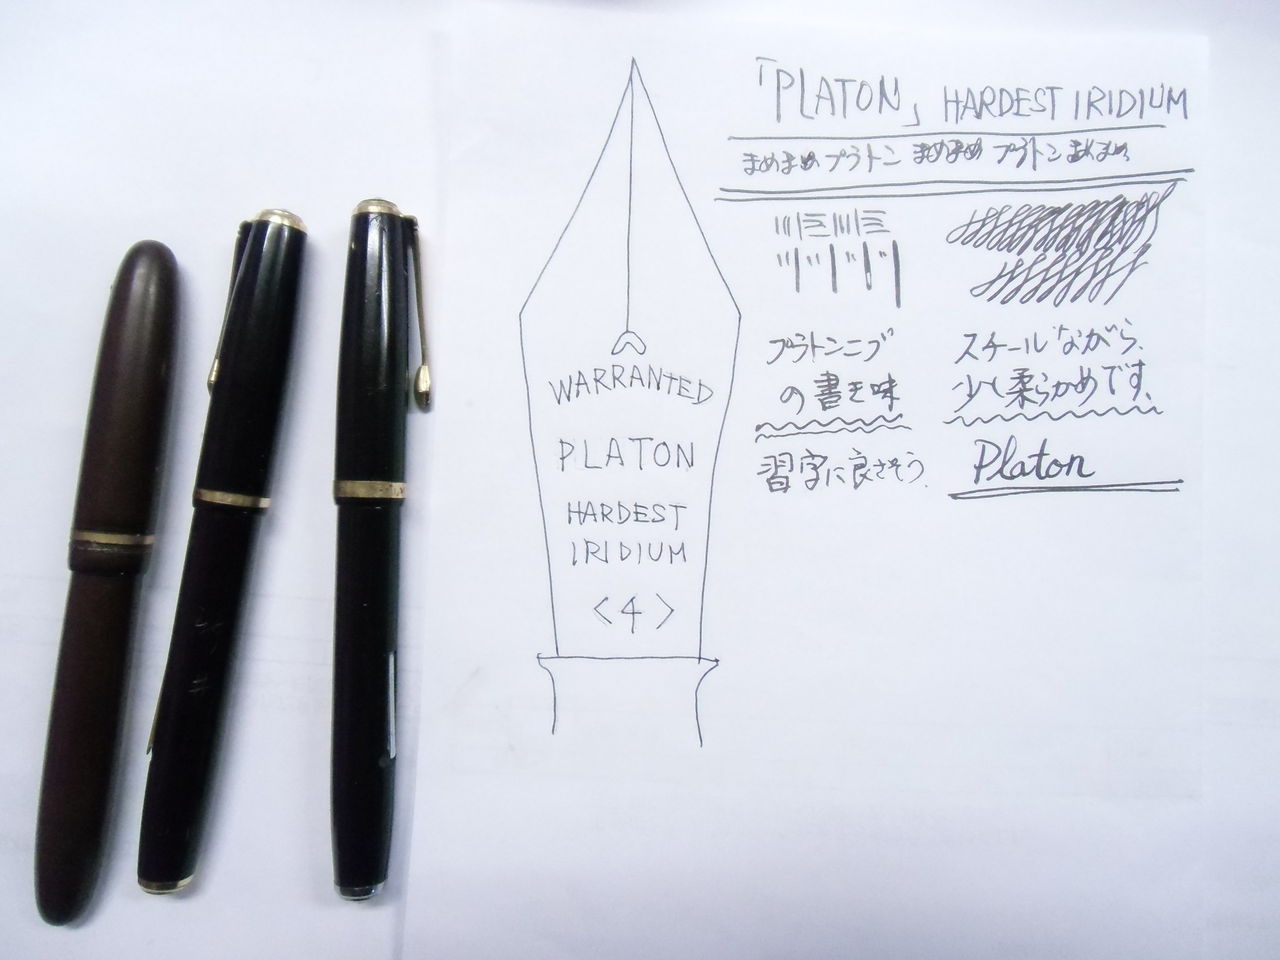 「PLATON」 HARDEST IRIDIUM
まめまめプラトン まめまめ プラトン まめまめ
プラトンニブ
の書き味
習字に良さそう.
スチールながら、
少し柔らかめです、
Platon
WARRANTED
PLATON
HARDEST
IRIDIUM
<4>